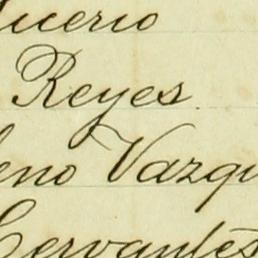 Lucerio
Reyes.
eno Vazqu
Cervantes